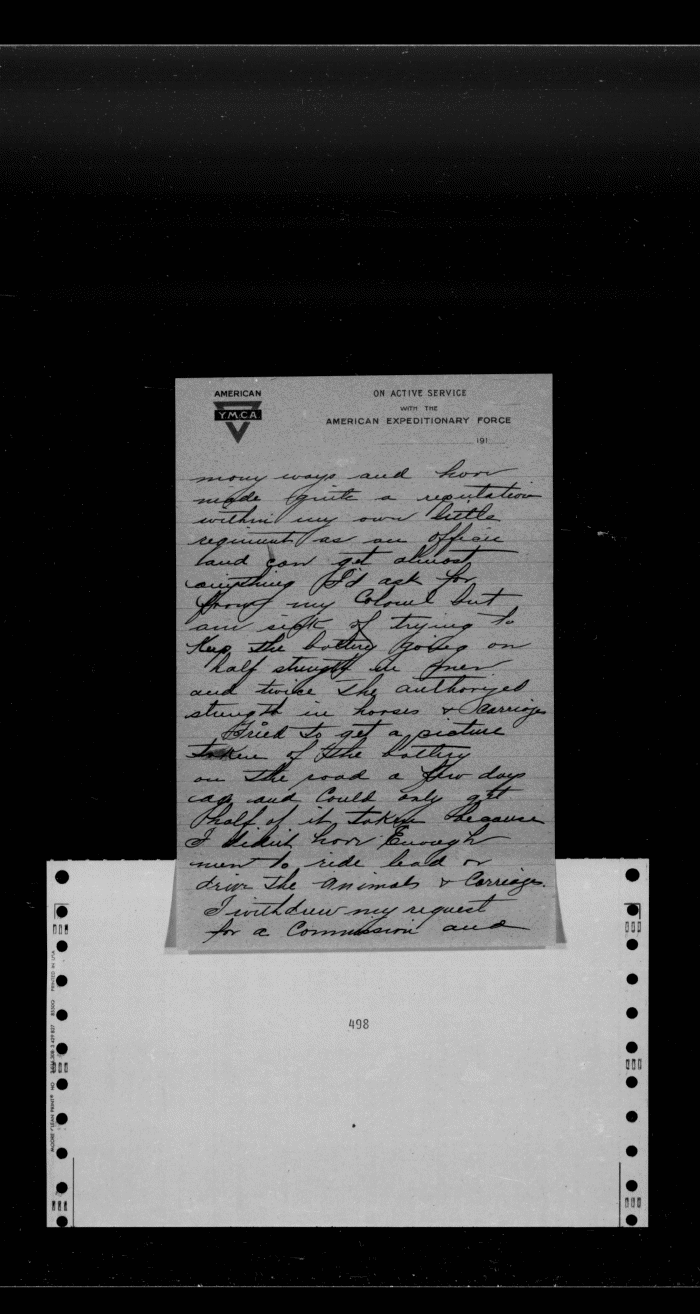 AMERICAN
Y.M.C.A
ON ACTIVE SERVICE
WITH THE
AMERICAN EXPEDITIONARY FORCE
191
many ways and have
made quite a reputation
within my own little
regiment as an officer
and can get almost
anything I'd ask for
from my Colonel but
am sick of trying to
Keep the battery going on
half strength in men
and twice the authorized
strength in horses & carriages
Tried to get a picture
taken of the battery
on the road a few days
ago and Could only get
half of it taken because
I didn't have Enough
men to ride lead or
drive the animals & Carriages.
I withdrew my request
for a Commission and
498
PRINTED IN USA
MOORE CLEAN PRINT